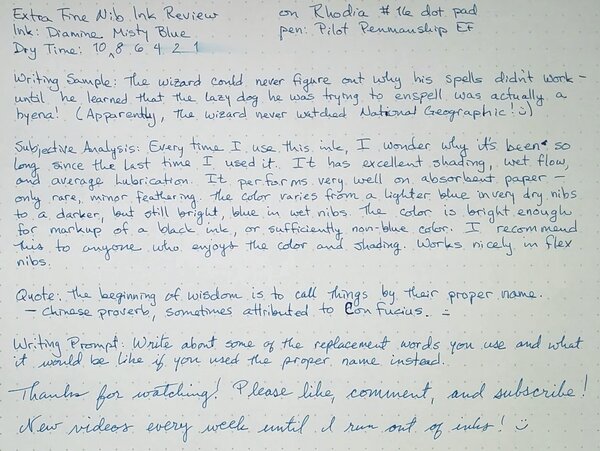 Extra Fine Nib Ink Review on Rhodia #16 dot pad
Ink: Diamine Misty Blue pen: Pilot Penmanship EF
Dry Time: 10 8 6 4 2 1
Writing Sample: The wizard could never figure out why his spells didn't work –
until he learned that the lazy dog he was trying to enspell was actually a
hyena! (Apparently, the wizard never watched National Geographic! :)
Subjective Analysis: Every time I use this ink, I wonder why it's been so
long since the last time I used it. It has excellent shading, wet flow,
and average lubrication. It performs very well on absorbent paper –
only rare, minor feathering. The color varies from a lighter blue in very dry nibs
to a darker, but still bright, blue in wet nibs. The color is bright enough
for markup of a black ink, or sufficiently non-blue color. I recommend
this to anyone who enjoys the color and shading. Works nicely in flex
nibs.
Quote: The beginning of wisdom is to call things by their proper name.
– Chinese proverb, sometimes attributed to Confucius. :)
Writing Prompt: Write about some of the replacement words you use and what
it would be like if you used the proper name instead.
Thanks for watching! Please like, comment, and subscribe!
New videos every week until I run out of inks! :)